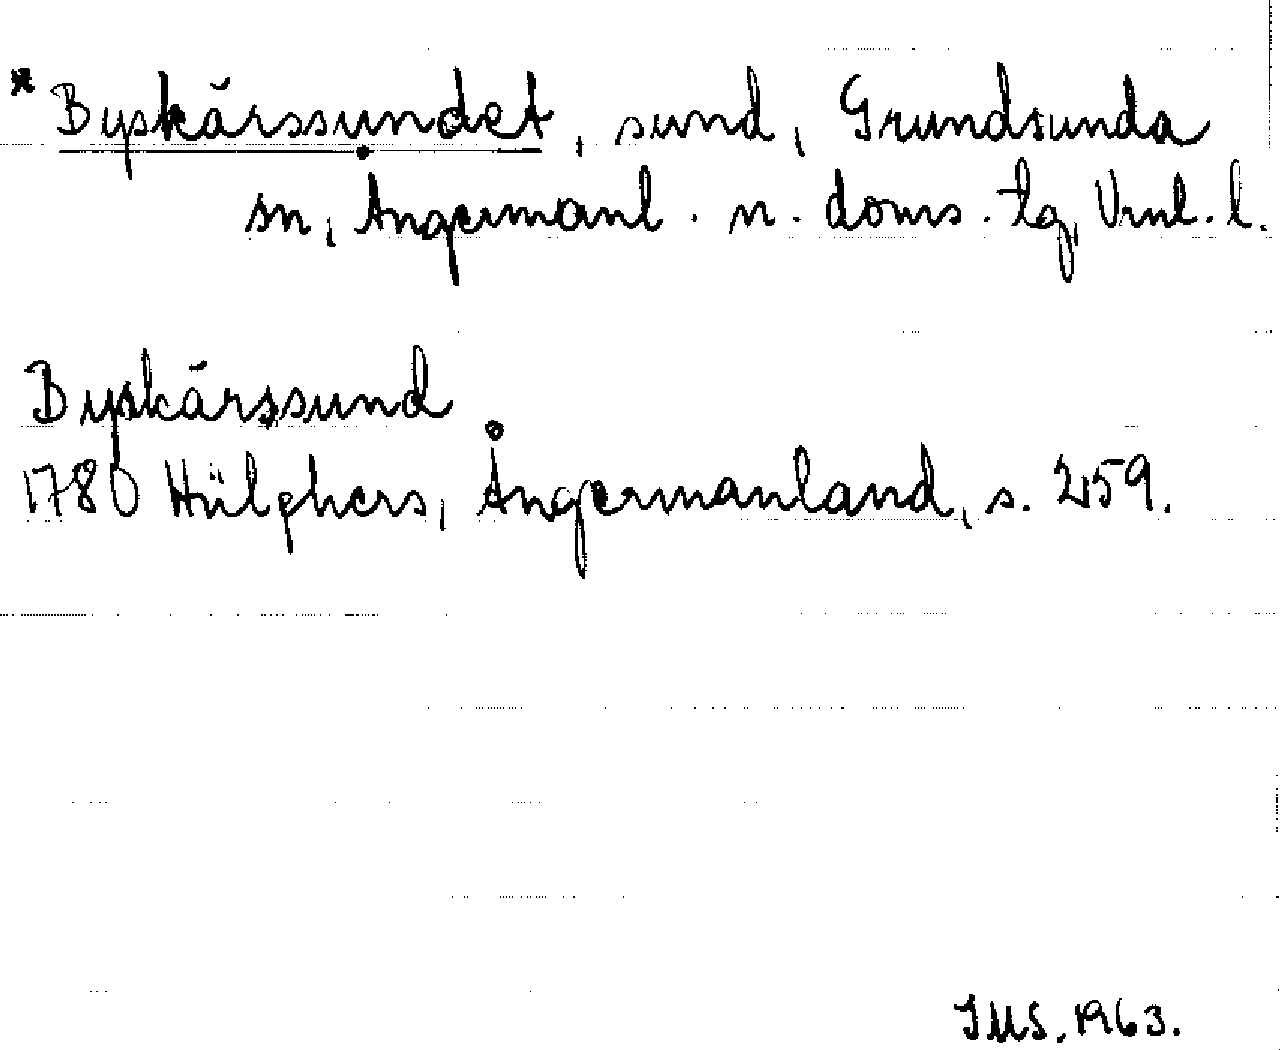 * Byskärssundet, sund, Grundsunda
sn, Ångermanl. n. doms. tg, Vnl. l.
Byskärssund
1780 Hülphers, Ångermanland, s. 259.
IMS, 1963.